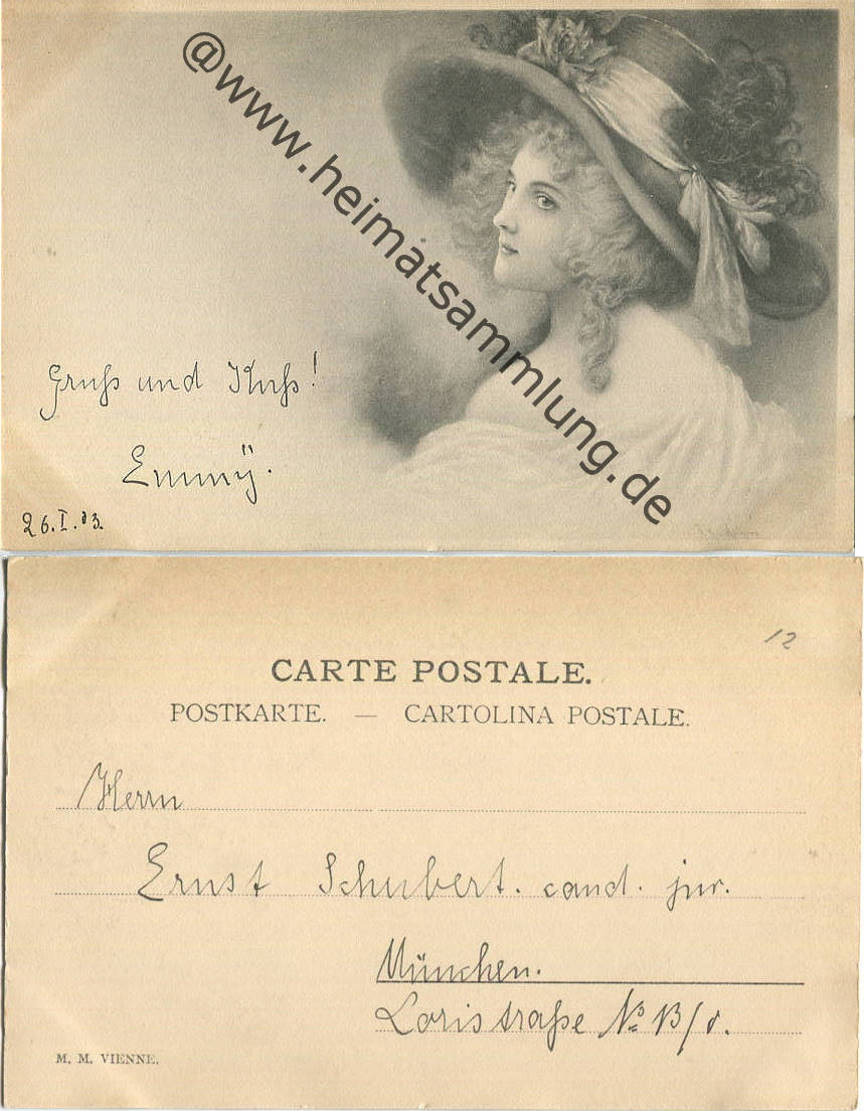 @www.heimatsammlung.de
Gruß und Kuß!
Emmÿ.
26.I.03.
12
CARTE POSTALE.
POSTKARTE. — CARTOLINA POSTALE.
Herrn
Ernst Schubert. cand. jur.
München.
Loristraße No
M. M. VIENNE.